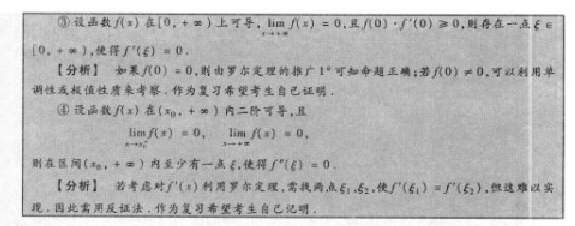 ③ 设函数 f(x) 在 [0, + ∞) 上可导, lim f(x) = 0, 且 f(0) · f′(0) ≥ 0, 则存在一点 ξ ∈
x→+∞
[0, + ∞), 使得 f′(ξ) = 0.
【分析】 如果 f(0) = 0, 则由罗尔定理的推广 1° 可知命题正确; 若 f(0) ≠ 0, 可以利用单
调性或极值性质来考察. 作为复习希望考生自己证明.
④ 设函数 f(x) 在 (x₀, + ∞) 内二阶可导, 且
lim f(x) = 0, lim f(x) = 0,
x→x₀⁺ x→+∞
则在区间 (x₀, + ∞) 内至少有一点 ξ, 使得 f″(ξ) = 0.
【分析】 若考虑对 f′(x) 利用罗尔定理, 需找两点 ξ₁, ξ₂, 使 f′(ξ₁) = f′(ξ₂), 但这难以实
现. 因此需用反证法. 作为复习希望考生自己记明.